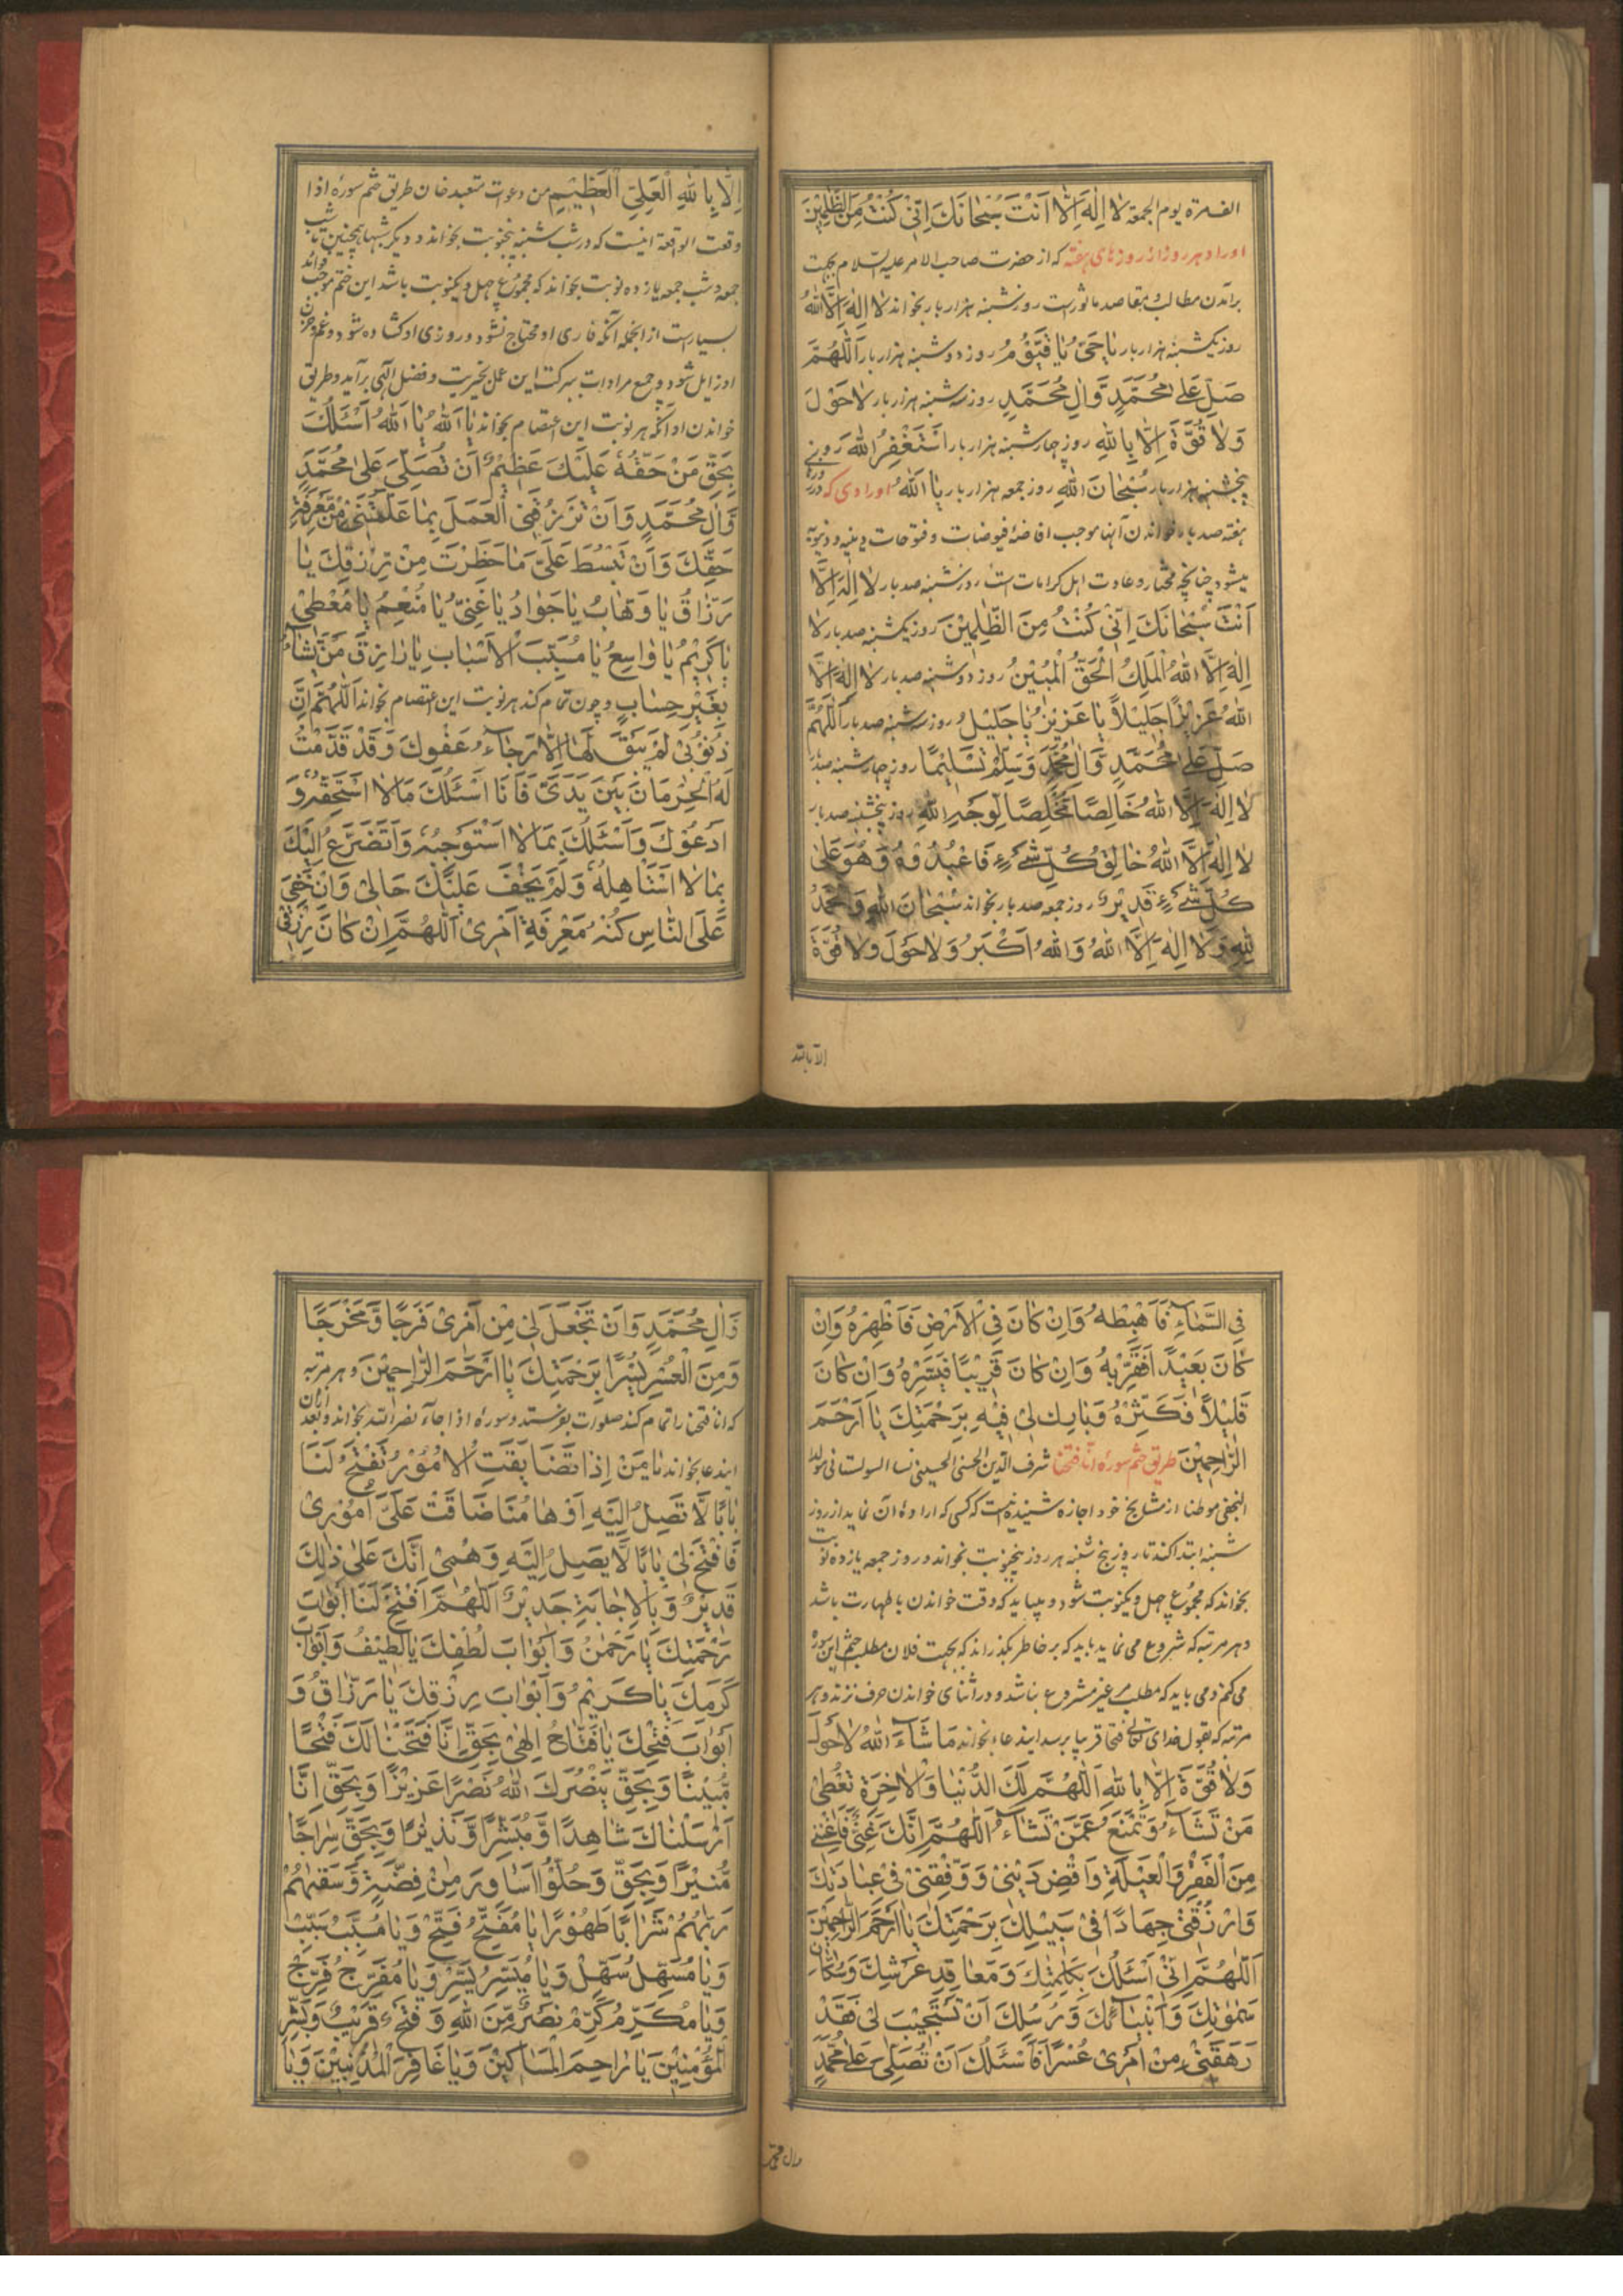 الف مرة يوم الجمعة لا اِلٰهَ اِلَّا اَنْتَ سُبْحَانَكَ اِنّى كُنْتُ مِنَ الظّٰلِمِيْنَ
اوراد هر روز از روزهاى هفته كه از حضرت صاحب الامر عليه السلام بجهت
برآمدن مطالب و مقاصد ماثورست روز شنبه هزار بار بخواند لا اِلٰهَ اِلَّا اللهُ
روز يكشنبه هزار بار يَا حَىُّ يَا قَيُّوْمُ روز دوشنبه هزار بار اَللّٰهُمَّ
صَلِّ عَلٰى مُحَمَّدٍ وَّاٰلِ مُحَمَّدٍ روز سه شنبه هزار بار لَا حَوْلَ
وَلَا قُوَّةَ اِلَّا بِاللهِ روز چهار شنبه هزار بار اَسْتَغْفِرُ اللهَ روز
پنجشنبه هزار بار سُبْحَانَ اللهِ روز جمعه هزار بار يَا اَللهُ اورادى كه در روز
هفته صد بار خواندن آنها موجب افاضۀ فيوضات و فتوحات دينيه و دنيويه
ميشود چنانچه مختار و عادت اهل كرامات است روز شنبه صد بار لَا اِلٰهَ اِلَّا
اَنْتَ سُبْحَانَكَ اِنّى كُنْتُ مِنَ الظّٰلِمِيْنَ روز يكشنبه صد بار لَا
اِلٰهَ اِلَّا اللهُ الْمَلِكُ الْحَقُّ الْمُبِيْنُ روز دوشنبه صد بار لَا اِلٰهَ اِلَّا
اللهُ عَزِيْزًا جَلِيْلًا يَا عَزِيْزُ يَا جَلِيْلُ روز سه شنبه صد بار اَللّٰهُمَّ
صَلِّ عَلٰى مُحَمَّدٍ وَّاٰلِ مُحَمَّدٍ وَسَلِّمْ تَسْلِيْمًا روز چهار شنبه صد بار
لَا اِلٰهَ اِلَّا اللهُ خَالِصًا مُخْلِصًا لِوَجْهِ اللهِ روز پنجشنبه صد بار
لَا اِلٰهَ اِلَّا اللهُ خَالِقُ كُلِّ شَىْءٍ فَاعْبُدُوْهُ وَهُوَ عَلٰى
كُلِّ شَىْءٍ قَدِيْرٌ روز جمعه صد بار بخواند سُبْحَانَ اللهِ وَالْحَمْدُ
لِلّٰهِ وَلَا اِلٰهَ اِلَّا اللهُ وَاللهُ اَكْبَرُ وَلَا حَوْلَ وَلَا قُوَّةَ
الا بالله
اِلَّا بِاللهِ الْعَلِىِّ الْعَظِيْمِ من دعوات متعبد خان طريق ختم سورۀ اذا
وقعت الواقعة اينست كه در شب شنبه پنجنوبت بخواند و ديگر شبها همچنين تا شب
جمعه و شب جمعه يازده نوبت بخواند كه مجموع چهل و يكنوبت باشد اين ختم موجب فوائد
بسيارست از انجمله آنكه قارى او محتاج نشود و روزى او گشاده شود و غم و حزن
او زايل شود و جمع مرادات ببركت اين عمل بخيريت و فضل الٓهى برآيد و طريق
خواندن او آنكه هر نوبت اين اعتصام بخواند يَا اَللهُ يَا اَللهُ اَسْئَلُكَ
بِحَقِّ مَنْ حَقُّهُ عَلَيْكَ عَظِيْمٌ اَنْ تُصَلِّىَ عَلٰى مُحَمَّدٍ
وَّاٰلِ مُحَمَّدٍ وَاَنْ تَرْزُقَنِى الْعَمَلَ بِمَا عَلَّمْتَنِىْ مِنْ مَّعْرِفَةِ
حَقِّكَ وَاَنْ تَبْسُطَ عَلَىَّ مَا حَظَرْتَ مِنْ رِّزْقِكَ يَا
رَزَّاقُ يَا وَهَّابُ يَا جَوَادُ يَا غَنِىُّ يَا مُنْعِمُ يَا مُعْطِىْ
يَا كَرِيْمُ يَا وَاسِعُ يَا مُسَبِّبَ الْاَسْبَابِ يَا رَازِقَ مَنْ يَّشَاءُ
بِغَيْرِ حِسَابٍ و چون تمام كند هر نوبت اين اعتصام بخواند اَللّٰهُمَّ اِنَّ
ذُنُوْبِىْ لَمْ يَبْقَ لَهَا اِلَّا رَجَاءُ عَفْوِكَ وَقَدْ قَدَّمْتُ
لَهُ الْحِرْمَانَ بَيْنَ يَدَىَّ فَاَنَا اَسْئَلُكَ مَا لَا اَسْتَحِقُّهُ وَ
اَدْعُوْكَ وَاَسْئَلُكَ بِمَا لَا اَسْتَوْجِبُهُ وَاَتَضَرَّعُ اِلَيْكَ
بِمَا لَا اَسْتَاْهِلُهُ وَلَمْ يَخْفَ عَلَيْكَ حَالِىْ وَاِنْ خَفِىَ
عَلَى النَّاسِ كُنْهُ مَعْرِفَةِ اَمْرِىْ اَللّٰهُمَّ اِنْ كَانَ رِزْقِىْ
فِى السَّمَاءِ فَاَهْبِطْهُ وَاِنْ كَانَ فِى الْاَرْضِ فَاَظْهِرْهُ وَاِنْ
كَانَ بَعِيْدًا فَقَرِّبْهُ وَاِنْ كَانَ قَرِيْبًا فَيَسِّرْهُ وَاِنْ كَانَ
قَلِيْلًا فَكَثِّرْهُ وَبَارِكْ لِىْ فِيْهِ بِرَحْمَتِكَ يَا اَرْحَمَ
الرَّاحِمِيْنَ طريق ختم سورۀ انا فتحنا شرف الدين الحسنى الحسينى نسبا السولستانى مولدا
النجفى موطنا از مشايخ خود اجازه شنيده است كه كسى كه اراده آن نمايد از روز
شنبه ابتدا كند تا روز پنج شنبه هر روز پنجنوبت بخواند و روز جمعه يازده نوبت
بخواند كه مجموع چهل و يكنوبت شود و ميبايد كه وقت خواندن با طهارت باشد
و هر مرتبه كه شروع مى نمايد بايد كه بر خاطر بگذراند كه بجهت فلان مطلب ختم اين سوره
مى كنم و مى بايد كه مطلب غير مشروع نباشد و در اثناى خواندن حرف نزند و هر
مرتبه كه بقول خداى تعالى فتحا قريبا برسد ايندعاء بخواند مَا شَاءَ اللهُ لَا حَوْلَ
وَلَا قُوَّةَ اِلَّا بِاللهِ اَللّٰهُمَّ لَكَ الدُّنْيَا وَالْاٰخِرَةُ تُعْطِىْ
مَنْ تَشَاءُ وَتَمْنَعُ عَمَّنْ تَشَاءُ اَللّٰهُمَّ اِنَّكَ غَنِىٌّ فَاَغْنِنِىْ
مِنَ الْفَقْرِ وَالْعَيْلَةِ وَاقْضِ دَيْنِىْ وَوَفِّقْنِىْ فِىْ عِبَادَتِكَ
وَارْزُقْنِىْ جِهَادًا فِىْ سَبِيْلِكَ بِرَحْمَتِكَ يَا اَرْحَمَ الرَّاحِمِيْنَ
اَللّٰهُمَّ اِنّىْ اَسْئَلُكَ بِكَلِمَتِكَ وَمَعَاقِدِ عَرْشِكَ وَسُكَّانِ
سَمٰوٰتِكَ وَاَنْبِيَائِكَ وَرُسُلِكَ اَنْ تَسْتَجِيْبَ لِىْ فَقَدْ
رَهَقَنِىْ مِنْ اَمْرِىْ عُسْرًا فَاَسْئَلُكَ اَنْ تُصَلِّىَ عَلٰى مُحَمَّدٍ
وال محمد
وَّاٰلِ مُحَمَّدٍ وَاَنْ تَجْعَلَ لِىْ مِنْ اَمْرِىْ فَرَجًا وَّمَخْرَجًا
وَمِنَ الْعُسْرِ يُسْرًا بِرَحْمَتِكَ يَا اَرْحَمَ الرَّاحِمِيْنَ و هر مرتبه
كه انا فتحنا را تمام كند صلوات بفرستد و سورۀ اذا جاء نصر الله بخواند و بعد از آن
ايندعا بخواند يَا مَنْ اِذَا تَضَايَقَتِ الْاُمُوْرُ تَفْتَحُ لَنَا
بَابًا لَّا تَصِلُ اِلَيْهِ اَوْهَامُنَا ضَاقَتْ عَلَىَّ اُمُوْرِىْ
فَافْتَحْ لِىْ بَابًا لَّا يَصِلُ اِلَيْهِ وَهْمِىْ اِنَّكَ عَلٰى ذٰلِكَ
قَدِيْرٌ وَّبِالْاِجَابَةِ جَدِيْرٌ اَللّٰهُمَّ افْتَحْ لَنَا اَبْوَابَ
رَحْمَتِكَ يَا رَحْمٰنُ وَاَبْوَابَ لُطْفِكَ يَا لَطِيْفُ وَاَبْوَابَ
كَرَمِكَ يَا كَرِيْمُ وَاَبْوَابَ رِزْقِكَ يَا رَزَّاقُ وَ
اَبْوَابَ فَتْحِكَ يَا فَتَّاحُ اِلٰهِىْ بِحَقِّ اِنَّا فَتَحْنَا لَكَ فَتْحًا
مُّبِيْنًا وَبِحَقِّ يَنْصُرَكَ اللهُ نَصْرًا عَزِيْزًا وَبِحَقِّ اِنَّا
اَرْسَلْنَاكَ شَاهِدًا وَّمُبَشِّرًا وَّنَذِيْرًا وَبِحَقِّ سِرَاجًا
مُّنِيْرًا وَبِحَقِّ وَحُلُّوْا اَسَاوِرَ مِنْ فِضَّةٍ وَّسَقٰهُمْ
رَبُّهُمْ شَرَابًا طَهُوْرًا يَا مُفَتِّحُ فَتِّحْ وَيَا مُسَبِّبُ سَبِّبْ
وَيَا مُسَهِّلُ سَهِّلْ وَيَا مُيَسِّرُ يَسِّرْ وَيَا مُفَرِّجُ فَرِّجْ
وَيَا مُكَرِّمُ كَرِّمْ نَصْرٌ مِّنَ اللهِ وَفَتْحٌ قَرِيْبٌ وَّبَشِّرِ
الْمُؤْمِنِيْنَ يَا رَاحِمَ الْمَسَاكِيْنَ وَيَا غَافِرَ الْمُذْنِبِيْنَ وَيَا